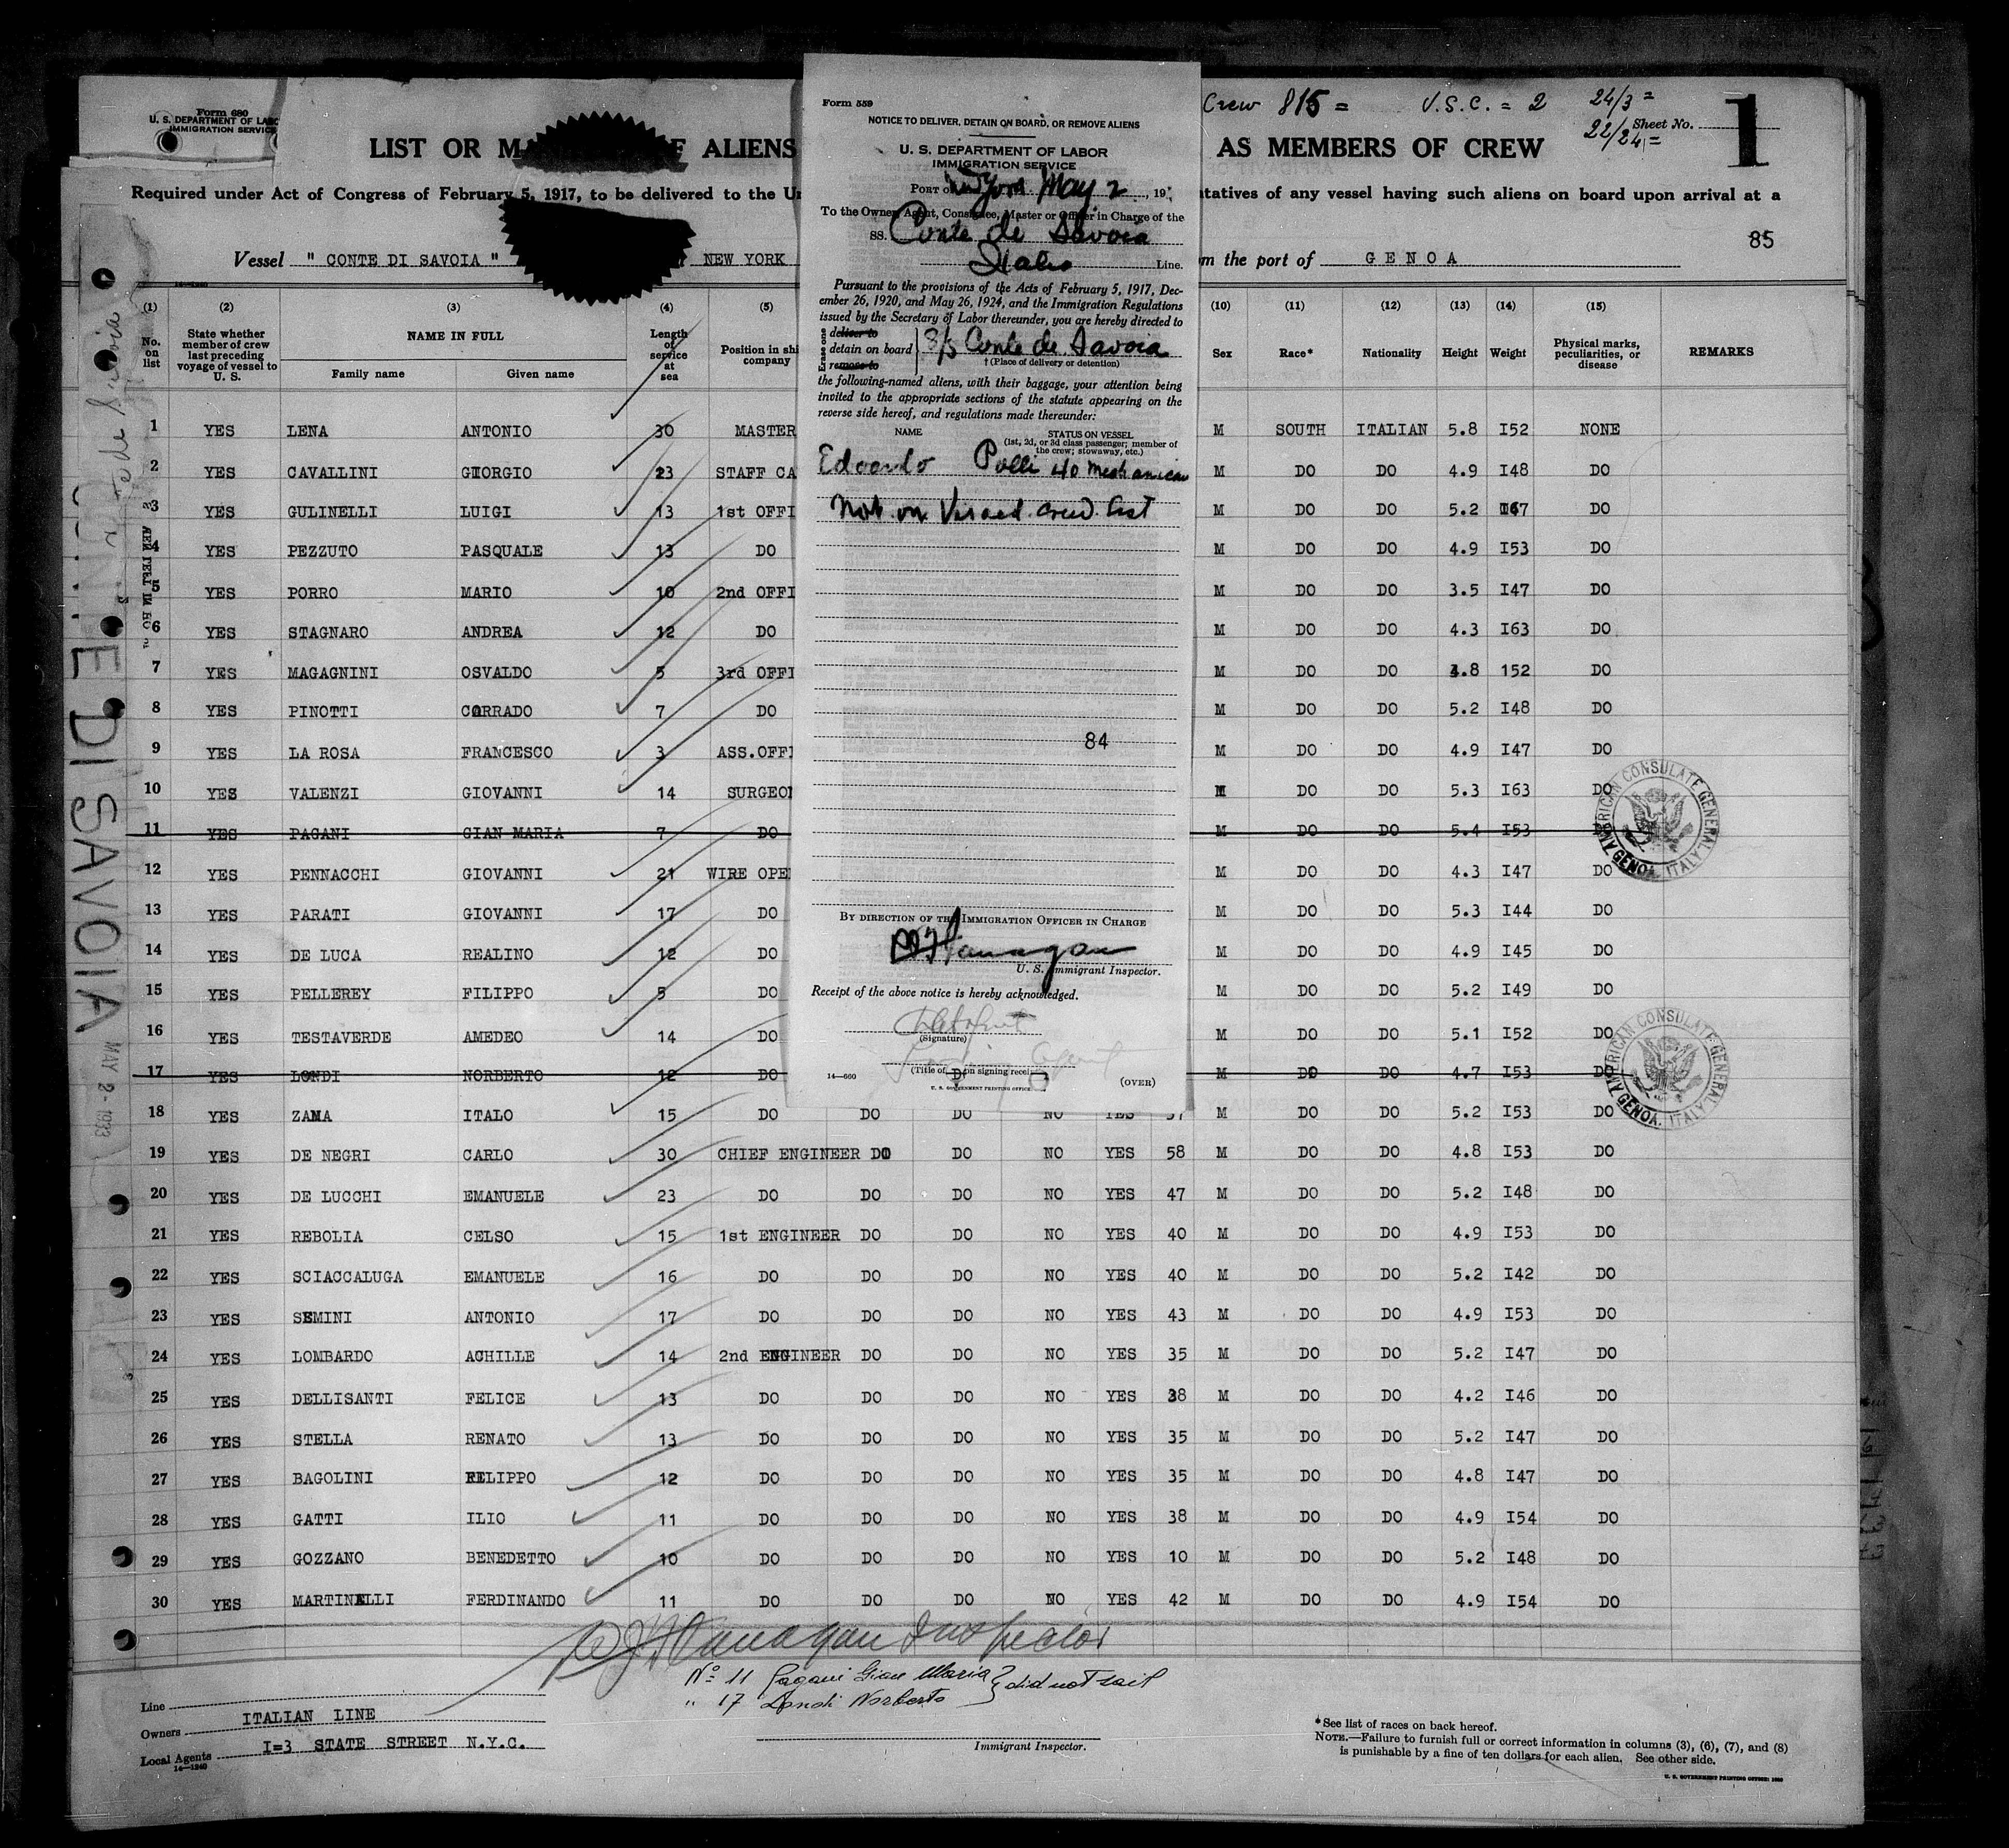 Form 680
U. S. DEPARTMENT OF LABO
IMMIGRATION SERVICE
Crew 815 = U.S.C. = 2 24/3 =
22/24 =
Sheet No. 1
LIST OR MA F ALIENS AS MEMBERS OF CREW
Required under Act of Congress of February 5, 1917, to be delivered to the Un tatives of any vessel having such aliens on board upon arrival at a
85
Vessel " CONTE DI SAVOIA " NEW YORK m the port of GENOA
Form 559
NOTICE TO DELIVER, DETAIN ON BOARD, OR REMOVE ALIENS
U. S. DEPARTMENT OF LABOR
IMMIGRATION SERVICE
PORT OF May 2, 19
To the Owner, Agent, Consignee, Master or Officer in Charge of the
SS. Conte de Savoia
Line.
Pursuant to the provisions of the Acts of February 5, 1917, Dec-
ember 26, 1920, and May 26, 1924, and the Immigration Regulations
issued by the Secretary of Labor thereunder, you are hereby directed to
Erase one
deliver to
detain on board S/S Conte de Savoia
remove to
† (Place of delivery or detention)
the following-named aliens, with their baggage, your attention being
invited to the appropriate sections of the statute appearing on the
reverse side hereof, and regulations made thereunder:
NAME STATUS ON VESSEL
(1st, 2d, or 3d class passenger; member of
the crew; stowaway, etc.)
Edoardo Polli 40 Mechanician
Not on Visaed crew list
84
BY DIRECTION OF THE IMMIGRATION OFFICER IN CHARGE
Flanagan
U. S. Immigrant Inspector.
Receipt of the above notice is hereby acknowledged.
(Signature)
Agent
(Title of person signing receipt)
14—600
U. S. GOVERNMENT PRINTING OFFICE
(OVER)
(1) (2) (3) (4) (5) (10) (11) (12) (13) (14) (15)
No. on list
State whether member of crew last preceding voyage of vessel to U. S.
NAME IN FULL
Family name Given name
Length of service at sea
Position in shi company
Sex Race* Nationality Height Weight
Physical marks, peculiarities, or disease
REMARKS
1 YES LENA ANTONIO 30 MASTER M SOUTH ITALIAN 5.8 I52 NONE
2 YES CAVALLINI GIORGIO 23 STAFF CA M DO DO 4.9 I48 DO
3 YES GULINELLI LUIGI 13 1st OFFI M DO DO 5.2 I67 DO
4 YES PEZZUTO PASQUALE 13 DO M DO DO 4.9 I53 DO
5 YES PORRO MARIO 10 2nd OFFI M DO DO 3.5 I47 DO
6 YES STAGNARO ANDREA 12 DO M DO DO 4.3 I63 DO
7 YES MAGAGNINI OSVALDO 5 3rd OFFI M DO DO 4.8 152 DO
8 YES PINOTTI CORRADO 7 DO M DO DO 5.2 I48 DO
9 YES LA ROSA FRANCESCO 3 ASS.OFFI M DO DO 4.9 I47 DO
10 YES VALENZI GIOVANNI 14 SURGEON M DO DO 5.3 I63 DO
11 YES PAGANI GIAN MARIA 7 DO M DO DO 5.4 I53 D
12 YES PENNACCHI GIOVANNI 21 WIRE OPE M DO DO 4.3 I47 DO
13 YES PARATI GIOVANNI 17 DO M DO DO 5.3 I44 DO
14 YES DE LUCA REALINO 12 DO M DO DO 4.9 I45 DO
15 YES PELLEREY FILIPPO 5 DO M DO DO 5.2 I49 DO
16 YES TESTAVERDE AMEDEO 14 DO M DO DO 5.1 I52 DO
17 YES LONDI NORBERTO 12 DO M DO DO 4.7 I53 DO
18 YES ZAMA ITALO 15 DO DO DO NO YES 37 M DO DO 5.2 I53 DO
19 YES DE NEGRI CARLO 30 CHIEF ENGINEER DO DO NO YES 58 M DO DO 4.8 I53 DO
20 YES DE LUCCHI EMANUELE 23 DO DO DO NO YES 47 M DO DO 5.2 I48 DO
21 YES REBOLIA CELSO 15 1st ENGINEER DO DO NO YES 40 M DO DO 4.9 I53 DO
22 YES SCIACCALUGA EMANUELE 16 DO DO DO NO YES 40 M DO DO 5.2 I42 DO
23 YES SEMINI ANTONIO 17 DO DO DO NO YES 43 M DO DO 4.9 I53 DO
24 YES LOMBARDO ACHILLE 14 2nd ENGINEER DO DO NO YES 35 M DO DO 5.2 I47 DO
25 YES DELLISANTI FELICE 13 DO DO DO NO YES 38 M DO DO 4.2 I46 DO
26 YES STELLA RENATO 13 DO DO DO NO YES 35 M DO DO 5.2 I47 DO
27 YES BAGOLINI FILIPPO 12 DO DO DO NO YES 35 M DO DO 4.8 I47 DO
28 YES GATTI ILIO 11 DO DO DO NO YES 38 M DO DO 4.9 I54 DO
29 YES GOZZANO BENEDETTO 10 DO DO DO NO YES 10 M DO DO 5.2 I48 DO
30 YES MARTINELLI FERDINANDO 11 DO DO DO NO YES 42 M DO DO 4.9 I54 DO
AMERICAN CONSULATE GENERAL GENOA, ITALY
AMERICAN CONSULATE GENERAL GENOA, ITALY
DI SAVOIA
MAY 2 - 1933
Flanagan Inspector
No 11 Pagani Gian Maria } did not sail
" 17 Londi Norberto
Line
Owners ITALIAN LINE
Local Agents I=3 STATE STREET N.Y.C.
14—1240
Immigrant Inspector.
* See list of races on back hereof.
NOTE.—Failure to furnish full or correct information in columns (3), (6), (7), and (8)
is punishable by a fine of ten dollars for each alien. See other side.
U. S. GOVERNMENT PRINTING OFFICE